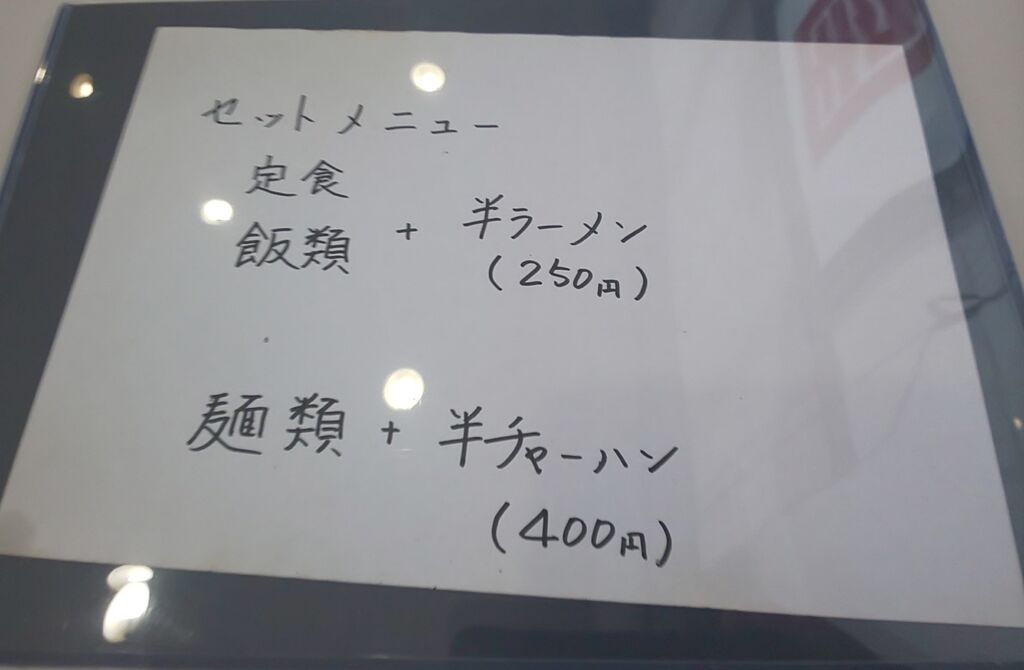 セットメニュー
定食
飯類 + 半ラーメン
(250円)
麺類 + 半チャーハン
(400円)